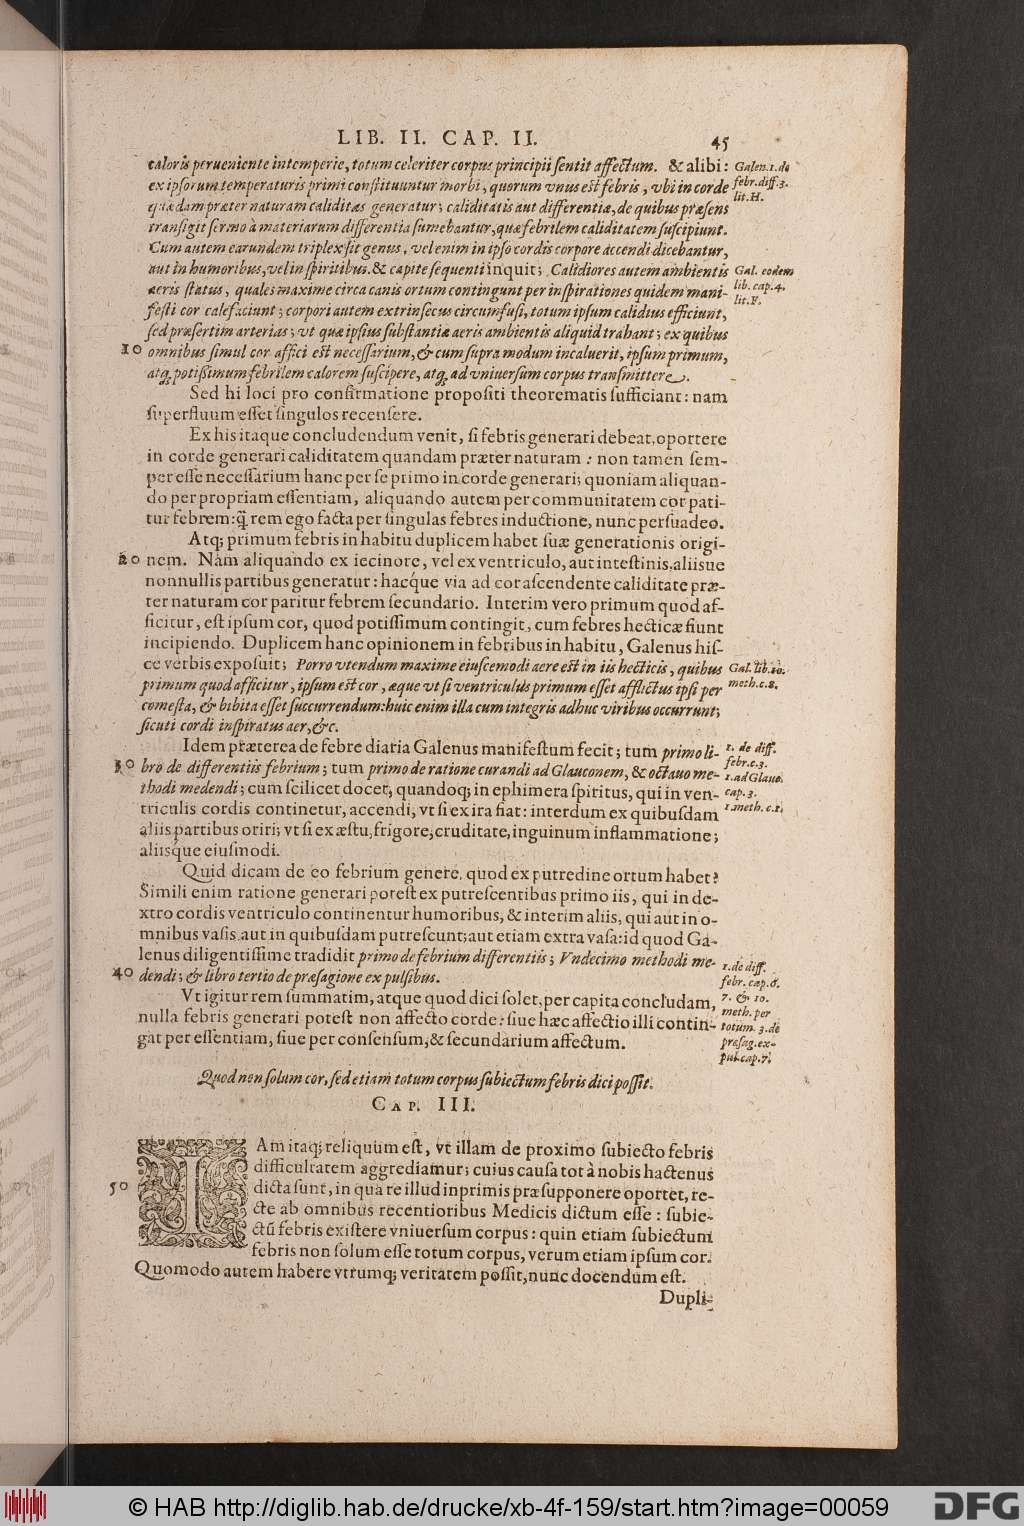 LIB. II. CAP. II. 45
caloris perueniente intemperie, totum celeriter corpus principii sentit affectum. & alibi: Galen. 1. de
ex ipsorum temperaturis primi constituuntur morbi, quorum vnus est febris, vbi in corde febr. diff. 3.
lit. H.
quædam præter naturam caliditas generatur; caliditatis aut differentiæ, de quibus præsens
transigit sermo à materiarum differentia sumebantur, quæ febrilem caliditatem suscipiunt.
Cum autem earundem triplex sit genus, vel enim in ipso cordis corpore accendi dicebantur,
aut in humoribus, vel in spiritibus. & capite sequenti inquit; Calidiores autem ambientis Gal. eodem
aeris status, quales maxime circa canis ortum contingunt per inspirationes quidem mani- lib. cap. 4.
lit. F.
festi cor calefaciunt; corpori autem extrinsecus circumfusi, totum ipsum calidius efficiunt,
sed præsertim arterias; vt quæ ipsius substantiæ aeris ambientis aliquid trahant; ex quibus
10 omnibus simul cor affici est necessarium, & cum supra modum incaluerit, ipsum primum,
atq; potißimum febrilem calorem suscipere, atq; ad vniuersum corpus transmittere.
Sed hi loci pro confirmatione propositi theorematis sufficiant: nam
superfluum esset singulos recensere.
Ex his itaque concludendum venit, si febris generari debeat, oportere
in corde generari caliditatem quandam præter naturam: non tamen sem-
per esse necessarium hanc per se primo in corde generari; quoniam aliquan-
do per propriam essentiam, aliquando autem per communitatem cor pati-
tur febrem: q̃ rem ego facta per singulas febres inductione, nunc persuadeo.
Atq; primum febris in habitu duplicem habet suæ generationis origi-
20 nem. Nam aliquando ex iecinore, vel ex ventriculo, aut intestinis, aliisue
nonnullis partibus generatur: hacq́ue via ad cor ascendente caliditate præ-
ter naturam cor paritur febrem secundario. Interim vero primum quod af-
ficitur, est ipsum cor, quod potissimum contingit, cum febres hecticæ fiunt
incipiendo. Duplicem hanc opinionem in febribus in habitu, Galenus his-
ce verbis exposuit; Porro vtendum maxime eiuscemodi aere est in iis hecticis, quibus Gal. lib. 10.
primum quod afficitur, ipsum est cor, æque vt si ventriculus primum esset afflictus ipsi per meth. c. 8.
comesta, & bibita esset succurrendum: huic enim illa cum integris adhuc viribus occurrunt;
sicuti cordi inspiratus aer, &c.
Idem præterea de febre diaria Galenus manifestum fecit; tum primo li- 1. de diff.
febr. c. 3.
30 bro de differentiis febrium; tum primo de ratione curandi ad Glauconem, & octauo me- 1. ad Glauc.
thodi medendi; cum scilicet docet, quandoq; in ephimera spiritus, qui in ven- cap. 3.
triculis cordis continetur, accendi, vt si ex ira fiat: interdum ex quibusdam
aliis partibus oriri; vt si ex æstu, frigore, cruditate, inguinum inflammatione;
aliisq́ue eiusmodi.
Quid dicam de eo febrium genere, quod ex putredine ortum habet?
Simili enim ratione generari potest ex putrescentibus primo iis, qui in de-
xtro cordis ventriculo continentur humoribus, & interim aliis, qui aut in o-
mnibus vasis aut in quibusdam putrescunt; aut etiam extra vasa: id quod Ga-
lenus diligentissime tradidit primo de febrium differentiis; Vndecimo methodi me- 1. de diff.
40 dendi; & libro tertio de præsagione ex pulsibus. febr. cap. 6.
Vt igitur rem summatim, atque quod dici solet, per capita concludam, 7. & 10.
nulla febris generari potest non affecto corde: siue hæc affectio illi contin- meth. per
totum. 3. de
gat per essentiam, siue per consensum, & secundarium affectum. præsag. ex-
pul. cap. 7.
Quod non solum cor, sed etiam totum corpus subiectum febris dici possit.
CAP. III.
IAm itaq; reliquum est, vt illam de proximo subiecto febris
difficultatem aggrediamur; cuius causa tot à nobis hactenus
50 dicta sunt, in qua re illud inprimis præsupponere oportet, re-
cte ab omnibus recentioribus Medicis dictum esse: subie-
ctũ febris existere vniuersum corpus: quin etiam subiectum
febris non solum esse totum corpus, verum etiam ipsum cor.
Quomodo autem habere vtrumq; veritatem possit, nunc docendum est.
Dupli-
© HAB http://diglib.hab.de/drucke/xb-4f-159/start.htm?image=00059 DFG